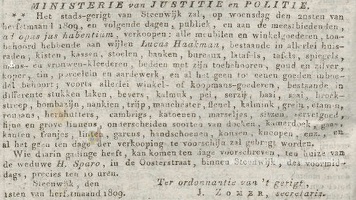 MINISTERIE van JUSTITIE en POLITIE.
*** Het stads-gerigt van Steenwijk zal, op woensdag den 20sten van
herfstmaand 1809, en volgende dagen, publiek, en aan de meestbiedenden,
ad opus jus habentium, verkoopen: alle meubilen en winkelgoederen, toe-
behoord hebbende aan wijlen Lucas Haalman, bestaande in allerlei huis-
raden, kisten, kassen, stoelen, banken, bureaux, tafels, spie-
gels, mans- en vrouwen-kleederen, bedden met zijn toebehooren, goud en zilver,
koper, tin, porcelein en aardewerk, en al het geen tot eenen goeden inboe-
del behoort; voorts allerlei winkel- of koopmans-goederen, bestaande in
differente stukken laken, bevers, kalmuk, pel, serge, baai,
streep, bombazijn, nankien, trijp, manchester, flenel, kalmink, grein,
cambrigs, katoenen, marseljes, sitzen, servetgoed,
fijne en grove linnens, en verscheiden soorten van doeken,
kanten, franjes, linten, garens, handschoenen, kousen, knoopen, enz. en
al het geen ten dage der verkooping te voorschijn zal gebragt worden.
Wie diarin gadinge heeft, kan komen ten dage voorschreven, ten huize van
de weduwe H. Spare, in de Oosterstraat, binnen Steenwijk, des voormid-
dags, precies ten 10 uren.
Steenwijk, den Ter ordonnantie van 't gerigt,
1sten van herfstmaand 1809. J. ZOMER, secretaris.